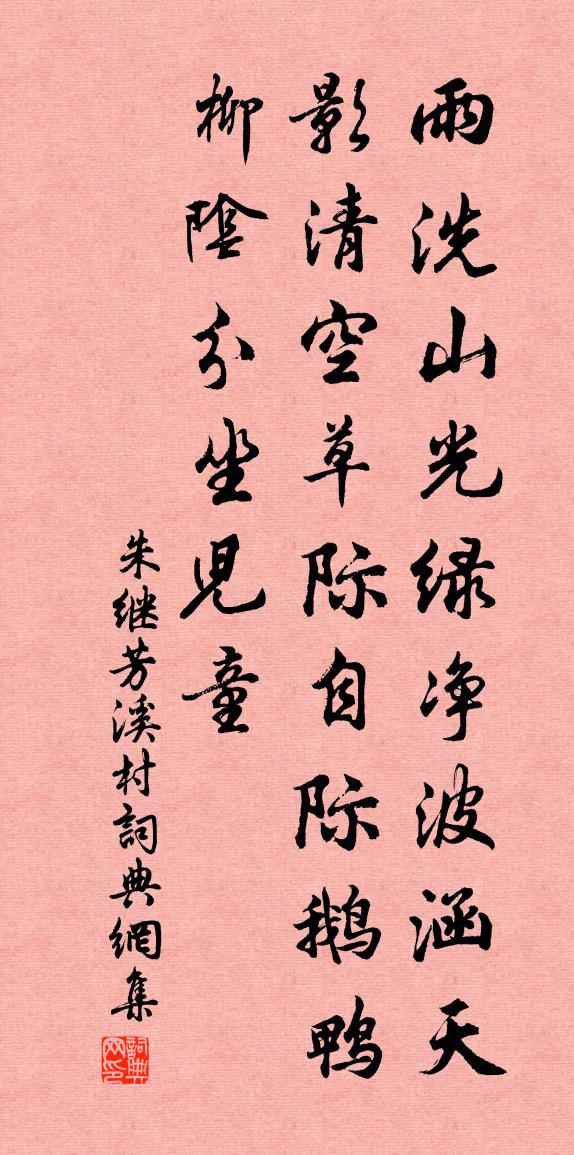 雨洗山光绿净波涵天
影清空草际自际鹅鸭
柳陰分坐児童
朱继芳溪村詞典網集
詞典
网印